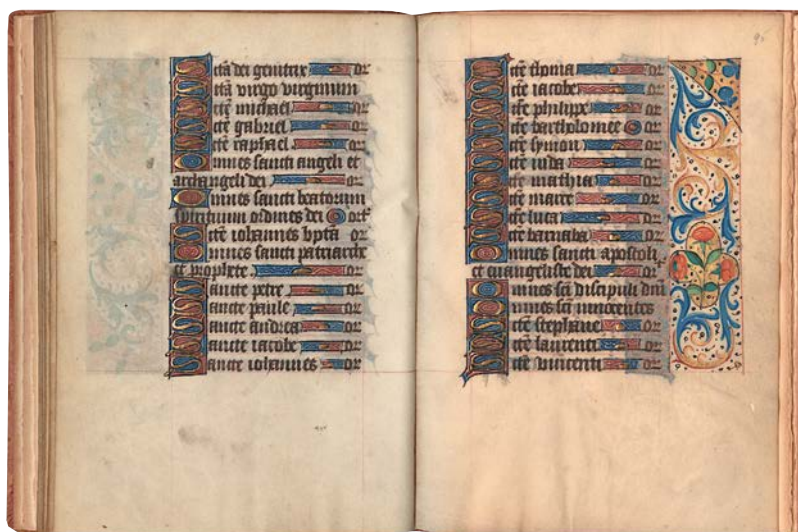 Scā dei genitrix or
Scā virgo virginum
Scē michael or
Scē gabriel or
Scē raphael or
Omnes sancti angeli et
archangeli dei or
Omnes sancti beatorum
spirituum ordines dei or
Scē iohannes bptā or
Omnes sancti patriarche
et prophete or
Sancte petre or
Sancte paule or
Sancte andrea or
Sancte iacobe or
Sancte iohannes or
Scē thoma or
Scē iacobe or
Scē philippe or
Scē bartholomee or
Scē symon or
Scē iuda or
Scē mathia or
Scē marce or
Scē luca or
Scē barnaba or
Omnes sancti apostoli
et euangeliste dei or
Omnes scī discipuli dnī
Omnes scī innocentes
Scē stephane or
Scē laurenti or
Scē vincenti or